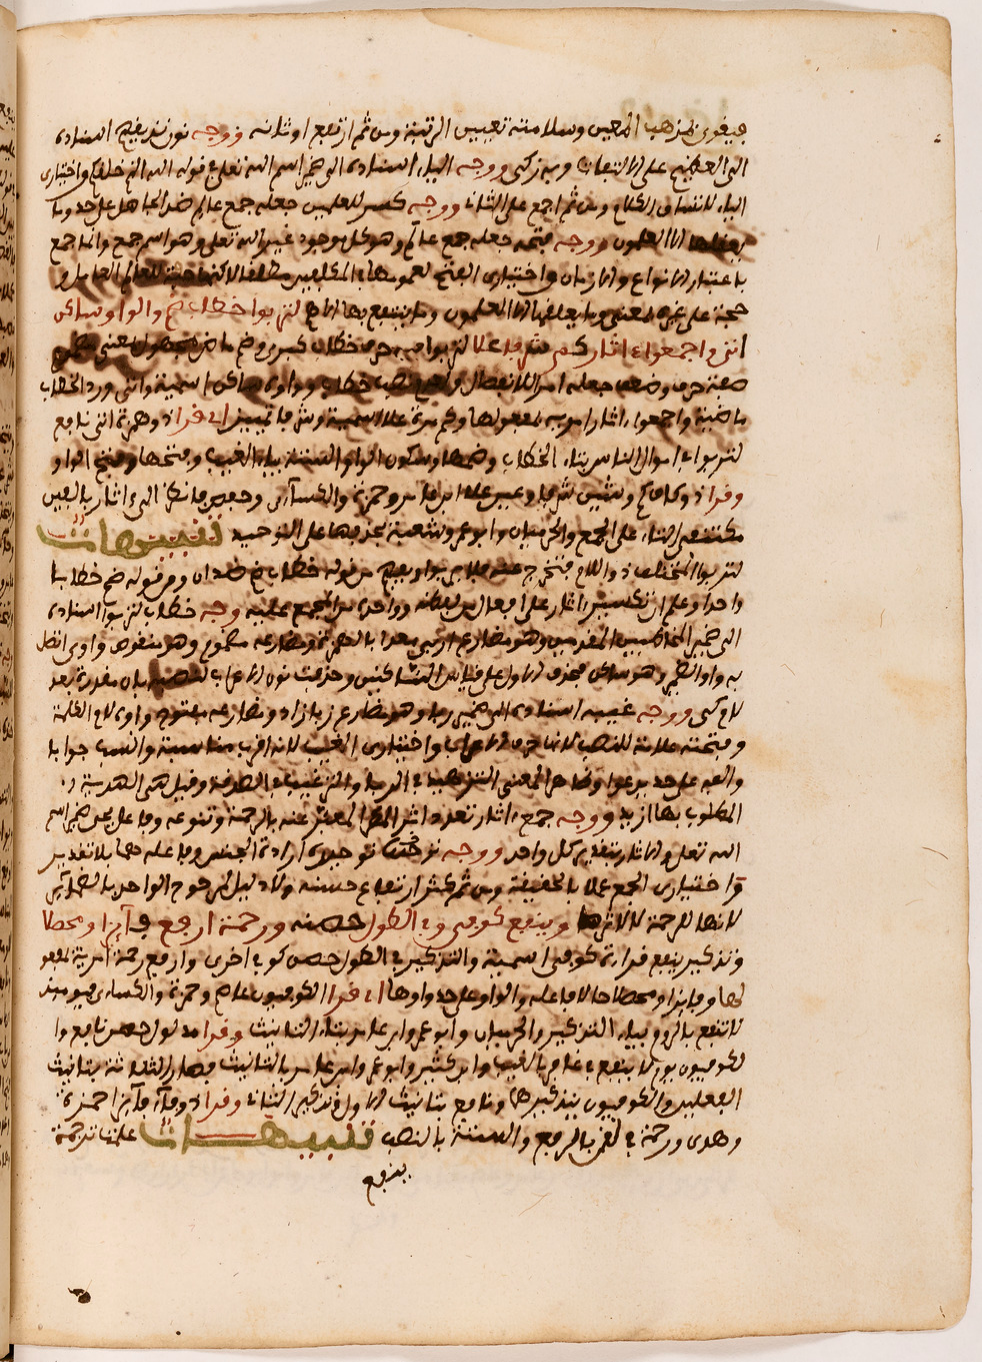 فيقوى لمذهب المعين وسلامته تعيين الرتبة ومن ثم ارتفع او ثلاثه ووجه نون نذيقهم اسناده
الى العظيم على الالتفات وبه زكى ووجه الياء اسناده الى ضمير اسم الله تعلى في قوله الله الذي خلقكم واختيارى
الياء لاتساق الكلام ومن ثم اجمع على الثاني ووجه كسر للعلمين جعله جمع عالم ضد الجاهل على حد وما
يعقلها الا العلمون ووجه فتحه جعله جمع عالم وهو كل موجود غير الله تعلى وهو اسم جمع وانما جمع
باعتبار الانواع والازمان واختيارى الفتح لعمومها في المكلفين مطلقا لا كنها حجة للعالم العامل و
حجة على غيره المعنى وما يعلمها الا العلمون وما ينتفع بها الا هم لتربوا خطاب ضم والواو ساكن
اتى واجمعوا اثار كم شرفا علا لتربوا حرف خطاب كبرى وضم ماض مجهول معنى
صفة حرف وضعف جعله امرا للانفصال خطاب وواوه ساكن اسمية واتى ورد الخطاب
ماضية واجمعوا اثار امر به مفعولها وكم مرة علا اسمية وشرفا تمييز اى قرا ذو همزة اتى نافع
لتربوا في اموال الناس بتاء الخطاب وضمها وسكون الواو والستة بياء الغيب وفتحها وفتح الواو
وقرا ذو كاف كم وشين شرفا وعين علا ابن عامر وحمزة والكسآى وحفص فانظر الى ءاثار بالفين
مكتنفى الثاء على الجمع والحرميان وابو عمرو وشعبة بحذفها على التوحيد تنبيهات
لتربوا المختلف ذو اللام فتخرج عنه فلا يربوا ويفهم من قوله خطاب ضم ضدان ومن قوله ضم خطابا
واحدا وعلم ان تكسير اثار على افعال من لفظه وواحده من المجمع عليه وجه خطاب لتربوآ اسناده
الى ضمير المخاطبين المقدمين وهو مضارع اربى معدا بالهمزة ومضارعه مضموم وهو منقوص واوى اتصل
به واو الضمير وهو ساكن فحذف الاول على قياس الساكنين وحذفت نون الاعراب لنصبه بان مقدرة بعد
لام كى ووجه غيبه اسناده الى ضمير ربا وهو مضارع ربا زاد ومضارعه مفتوح واوه لام الكلمة
وفتحته علامة للنصب لانها حرف الاعراب واختيارى الغيب لانه اقرب مناسبة وانسب جوابا
والفه على حد يدعوا وظاهر المعنى الترهيب في الربا والترغيب في الصدقة وقيل هى الهدية
المطلوب بها ازيد ووجه جمع ءاثار تعدد اثر المطر المعبر عنه بالرحمة وتنوعه وفاعل يحى ضمير اسم
الله تعلى والاثار بتقدير كل واحد ووجه توحيده ارادة الجنس وفاعله هما بلا تقدير
واختيارى الجمع عملا بالحقيقة ومن ثم كثر ارتفاع حسنه
لانها للرحمة لا لاثرها وينفع كوفى وفى الطول حصنه ورحمة ارفع فآئزا ومحصلا
وتذكير ينفع قراءة كوفى اسمية والتذكير في الطول حصن كو في اخرى وارفع رحمة امرية مفعو
لها وفايزا ومحصلا حالا فاعله والواو على حد واوها اى قرا الكوفيون عاصم وحمزة والكساى فيوميذ
لا ينفع بالروم بياء التذكير والحرميان وابو عمرو وابن عامر بتاء التانيث وقرا مدلول حصن نافع وا
لكوفيون يوم لا ينفع في غافر بالغيب وابن كثير وابو عمرو وابن عامر بالتانيث فصار الثلاثة بتانيث
الفعلين والكوفيون بتذكيرهما ونافع بتانيث الاول وتذكير الثانى وقرا ذو فآء فآئزا حمزة
وهدى ورحمة في لقمن بالرفع والستة بالنصب تنبيهات علمت ترجمة
ينفع